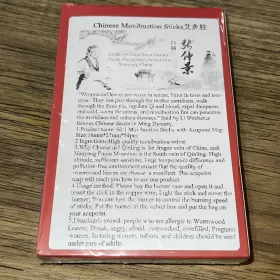 Chinese Moxibustion Sticks艾灸柱
张仲景
Made in China from Henan
Nanyang China
"Wormwood leaves are warm in nature, bitter in taste and non-
toxic. They can pass through the twelve meridians, walk
through the three yin, regulate Qi and blood, repel dampness
and cold, warm the uterus, and moxibustion fire can penetrate
the meridians and reduce diseases." Said by Li Shizhen a
famous Chinese doctor in Ming Dynasty.
1.Product name :60 Moxibustion Sticks with Acupoint Map
2.Ingredients:High quality moxibustion velvet
3.Why choose us? Qiting is the dragon vein of China, and
Nanyang Funiu Mountain is the South vein of Qinling. High
altitude, sufficient sunshine, large temperature difference and
pollution-free environment ensure that the quality of
wormwood leaves we choose is excellent. The acupoint
map will teach you how to use our product.
4.Usage method: Please buy the burner case and open it and
insert the stick to the copper wire; Light the stick and cover the
burner; You can turn the burner to control the burning speed
of sticks; Put the burner in the velvet box and put the bag on
your acupoint.
5.Unsuitable crowd: people who are allergic to Wormwood
Leaves; Drunk, angry, afraid, overworked, overfilled; Pregnant
women, lactating women, infants, and children should be used
under care of adults.